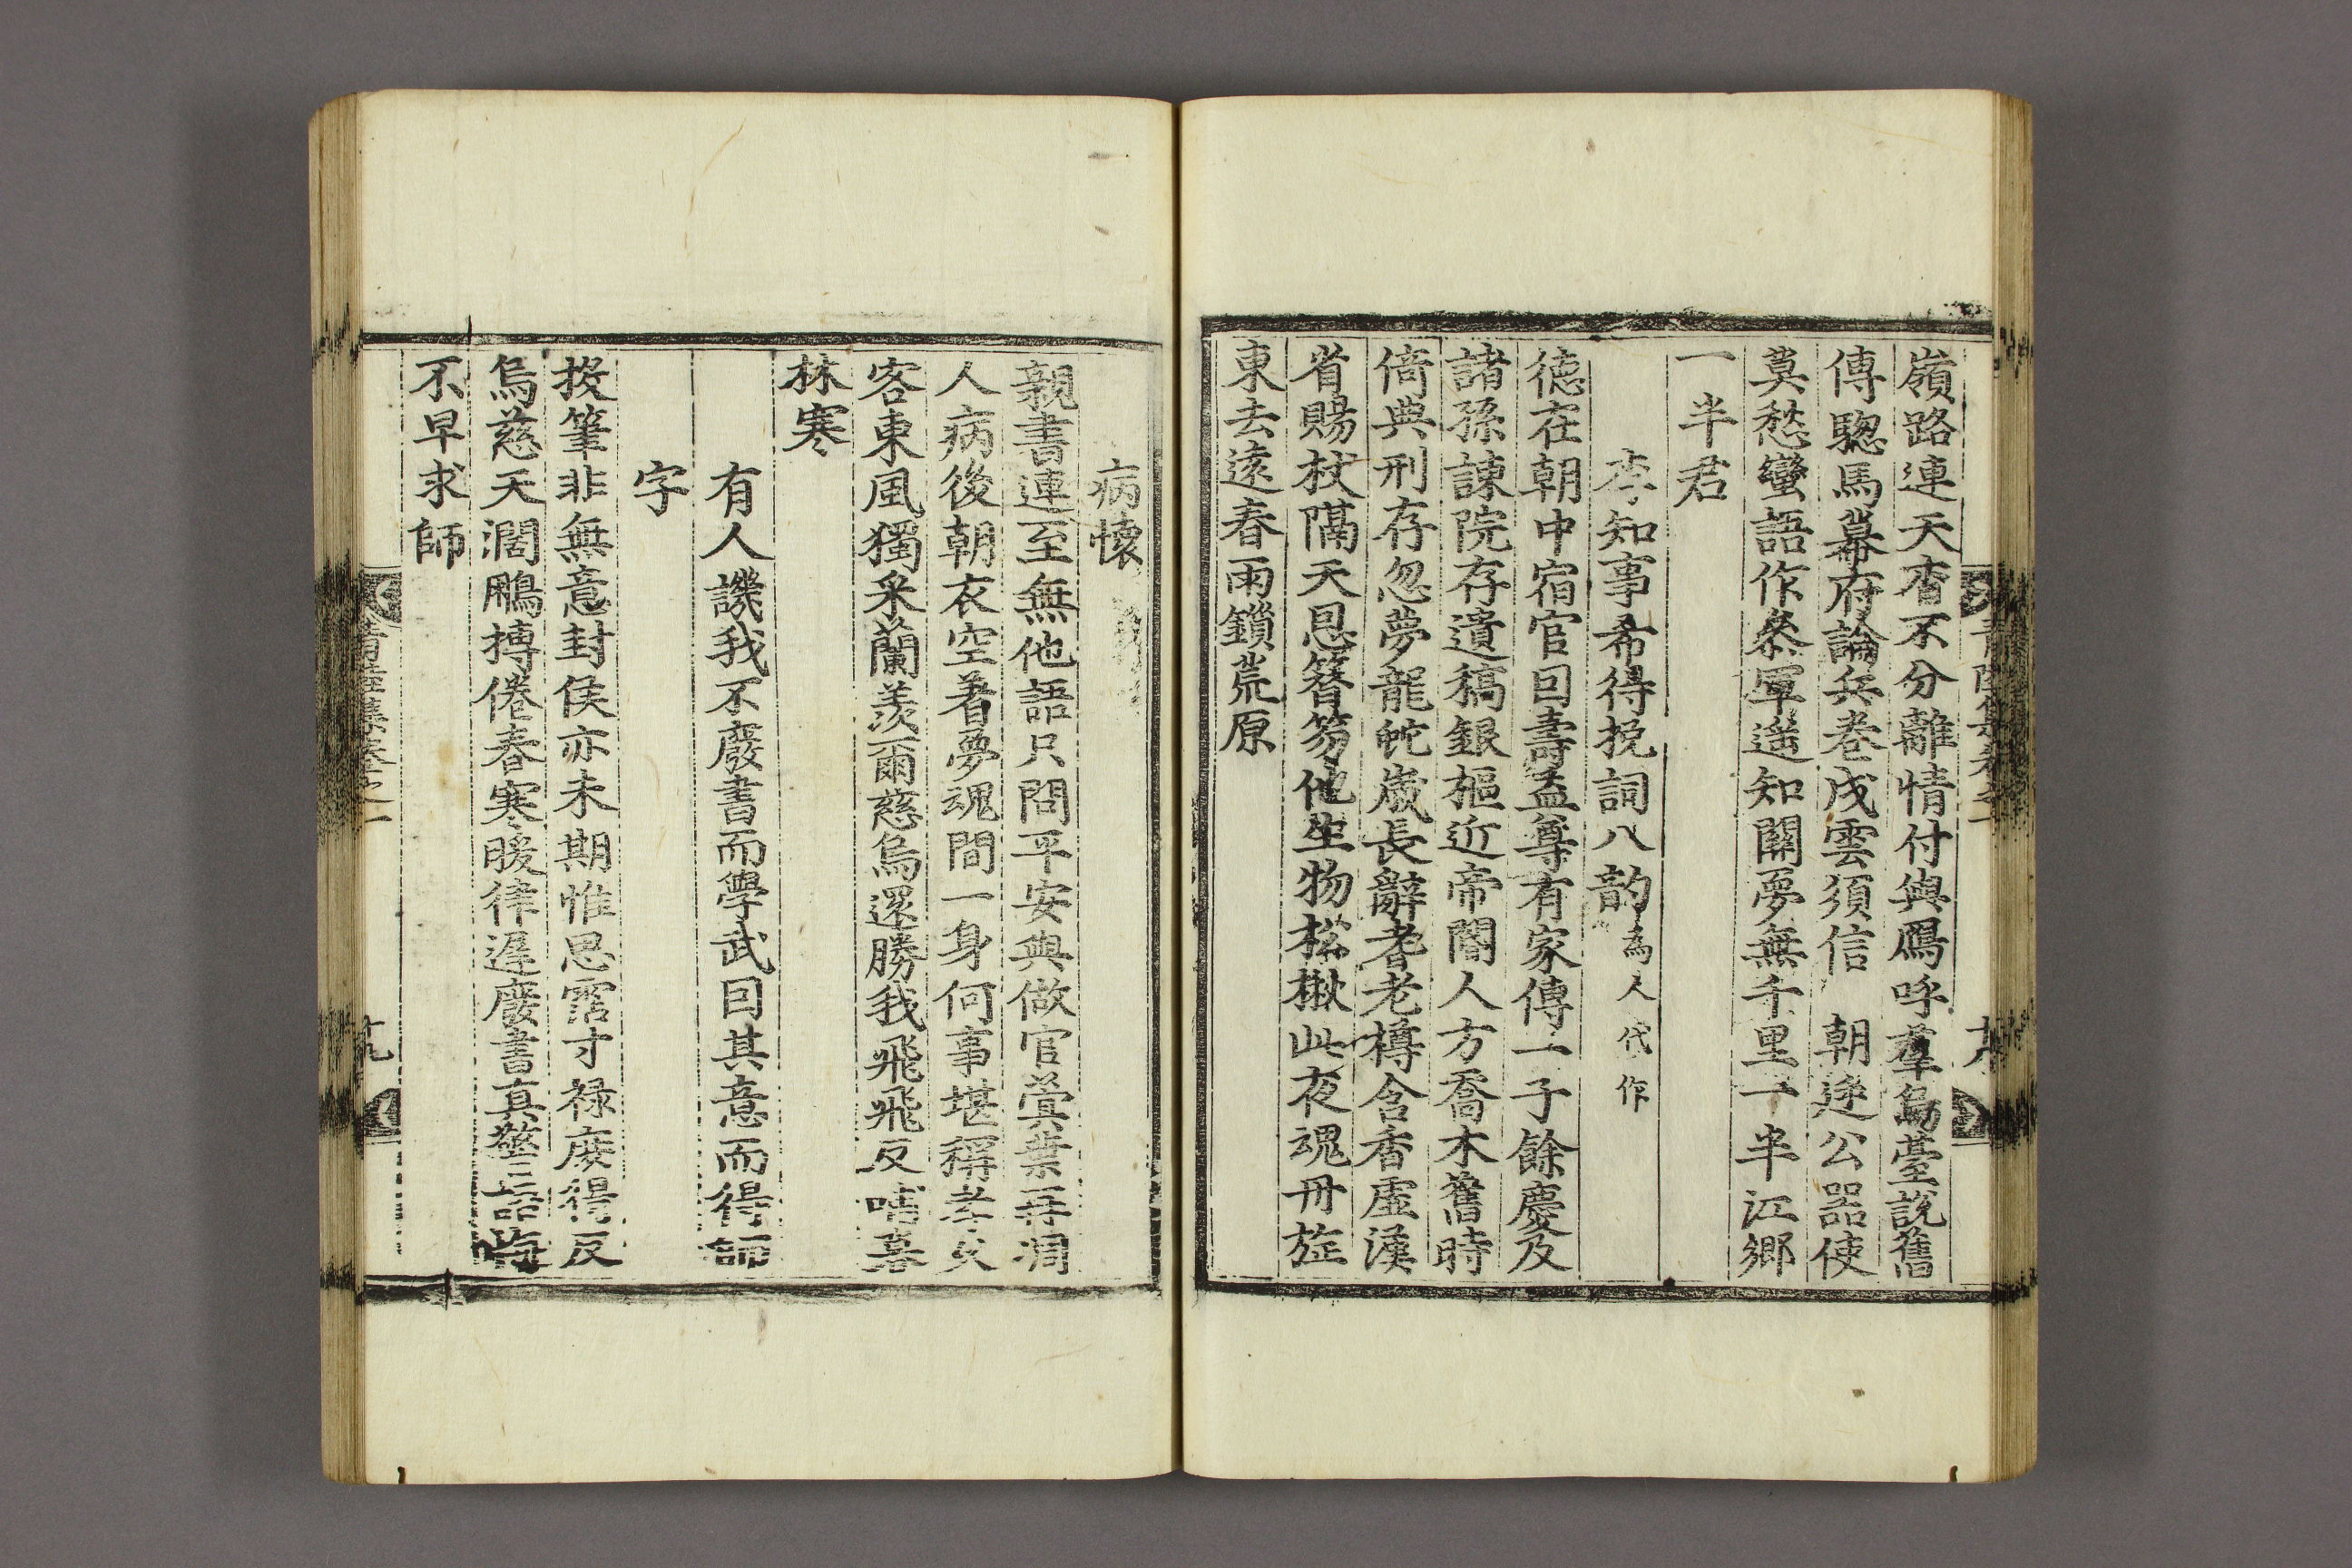 嶺路連天杳不分離情付與鴈呼羣烏臺說舊
傳驄馬幕府論兵卷戍雲須信 朝逆公器使
莫愁蠻語作叅軍遥知關夢無千里一半江鄉
一半君
李知事希得挽詞八韵 為人代作
德在朝中宿官囙壽益尊有家傳一子餘慶及
諸孫諫院存遺稿銀樞近帝閽人方喬木舊時
倚典刑存忽夢龍蛇歲長辭耆老樽含香虛漢
省賜杖隔天恩簪笏他生物松楸此夜魂丹旌
東去遠春雨鎖荒原
病懷
親書連至無他語只問平安與做官黃葉再凋
人病後朝衣空著夢魂間一身何事堪稱孝久
客東風獨采蘭羨爾慈烏還勝我飛飛反哺暮
林寒
有人譏我不廢書而學武囙其意而得師
字
投筆非無意封侯亦未期惟思霑寸祿庶得反
烏慈天濶鵬搏倦春寒暖律遲廢書真警語悔
不早求師